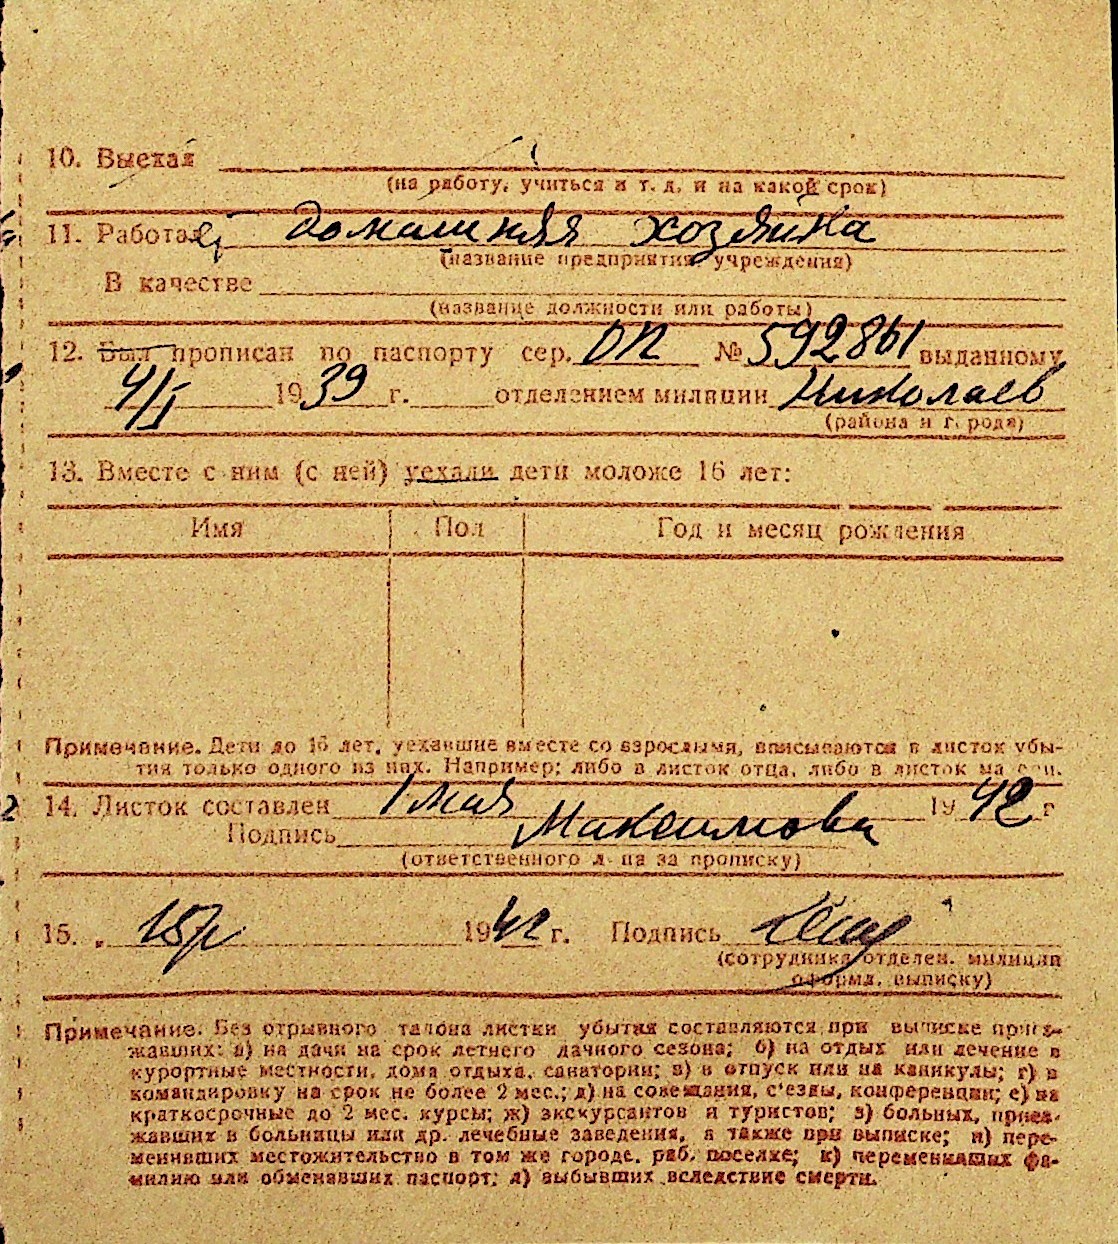 10. Выехал
(на работу, учиться и т. д. и на какой срок)
11. Работал домашняя хозяйка
(название предприятия, учреждения)
В качестве
(название должности или работы)
12. Был прописан по паспорту сер. ОП № 592861 выданному
4/I 1939 г. отделением милиции Николаев
(района и города)
13. Вместе с ним (с ней) уехали дети моложе 16 лет:
Имя Пол Год и месяц рождения
Примечание. Дети до 16 лет, уехавшие вместе со взрослыми, вписываются в листок убы-
тия только одного из них. Например: либо в листок отца, либо в листок матери.
14. Листок составлен 1 мая 1942 г
Подпись Максимова
(ответственного лица за прописку)
15. „ 1942 г. Подпись
(сотрудника отделен. милиции
оформл. выписку)
Примечание. Без отрывного талона листки убытия составляются при выписке приез-
жавших: а) на дачи на срок летнего дачного сезона; б) на отдых или лечение в
курортные местности, дома отдыха, санатории; в) в отпуск или на каникулы; г) в
командировку на срок не более 2 мес.; д) на совещания, с'езды, конференции; е) на
краткосрочные до 2 мес. курсы; ж) экскурсантов и туристов; з) больных, приез-
жавших в больницы или др. лечебные заведения, а также при выписке; и) пере-
менивших местожительство в том же городе, раб. поселке; к) переменивших фа-
милию или обменявших паспорт; л) выбывших вследствие смерти.